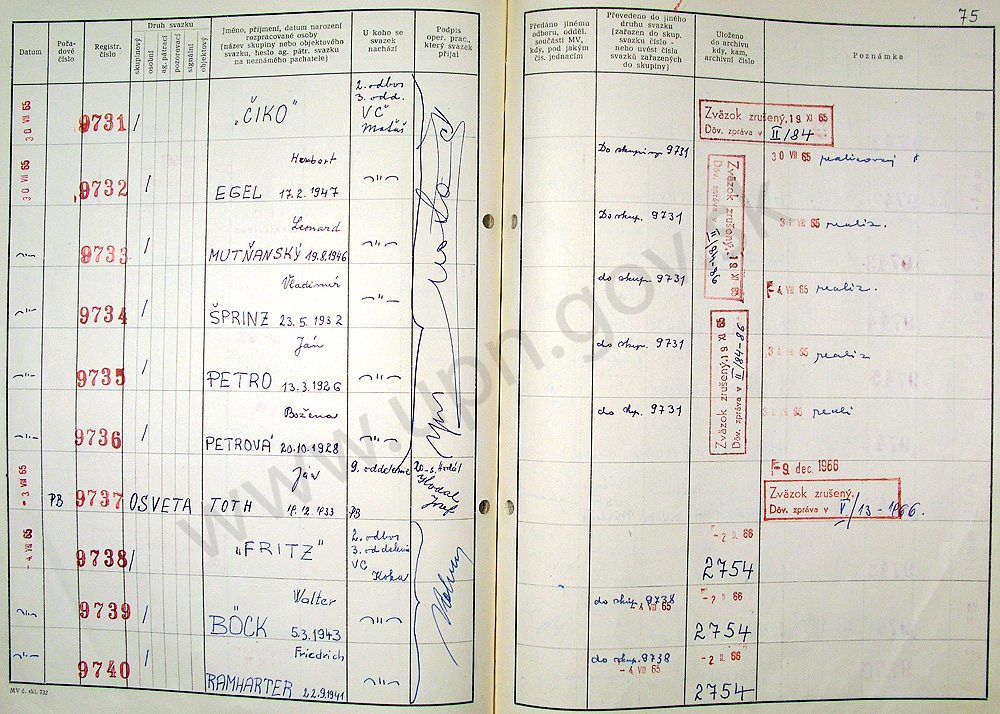 75
Datum
Pořa-
dové
číslo
Registr.
číslo
Druh svazku
skupinový
osobní
ag. pátrací
pozorovací
signální
objektový
Jméno, příjmení, datum narození
rozpracované osoby
(název skupiny nebo objektového
svazku, heslo ag. pátr. svazku
na neznámého pachatele)
U koho se
svazek
nachází
Podpis
oper. prac.,
který svazek
přijal
Předáno jinému
odboru, odděl.
součásti MV,
kdy, pod jakým
čís. jednacím
Převedeno do jiného
druhu svazku
(zařazen do skup.
svazku číslo -
nebo uvést čísla
svazků zařazených
do skupiny)
Uloženo
do archivu
kdy, kam,
archivní číslo
Poznámka
30 VII 65
9731 /
„ČIKO"
2. odbor
3. odd.
VČ
Zväzok zrušený, 19 XI 65
Dôv. zpráva v II/84
30 VII 65
9732 /
Herbert
EGEL 17.2.1947
-„-
Do skupiny 9731
Zväzok zrušený, 19 XI 65
Dôv. zpráva v
30 VII 65
-„-
9733 /
Leonard
MUTŇANSKÝ 19.8.1946
-„-
Do skup. 9731
31 VII 65 realiz.
-„-
9734 /
Vladimír
ŠPRINZ 23.5.1932
-„-
do skup. 9731
-4 VIII 65 realiz.
-„-
9735 /
Ján
PETRO 13.3.1926
-„-
do skup. 9731
Zväzok zrušený, 19 XI 65
Dôv. zpráva v II/84-88
31 VII 65 realiz
-„-
9736 /
Božena
PETROVÁ 20.10.1928
-„-
do skup. 9731
31 VII 65 reali
-3 VIII 65
PB
9737 OSVETA
Ján
TOTH
9. oddelenie
PB
-9. dec. 1966
Zväzok zrušený,
Dôv. zpráva v V/13-1966.
-4 VIII 65
9738 /
„FRITZ"
2. odbor
3. oddelenie
VČ
-2 II. 66
2754
-„-
9739 /
Walter
BÖCK 5.3.1943
-„-
do skup. 9738
-4 VIII 65
-2 II 66
2754
-„-
9740 /
Friedrich
RAMHARTER 22.9.1941
-„-
do skup. 9738
-4 VIII 65
-2 II. 66
2754
MV č. skl. 732
www.upn.gov.sk